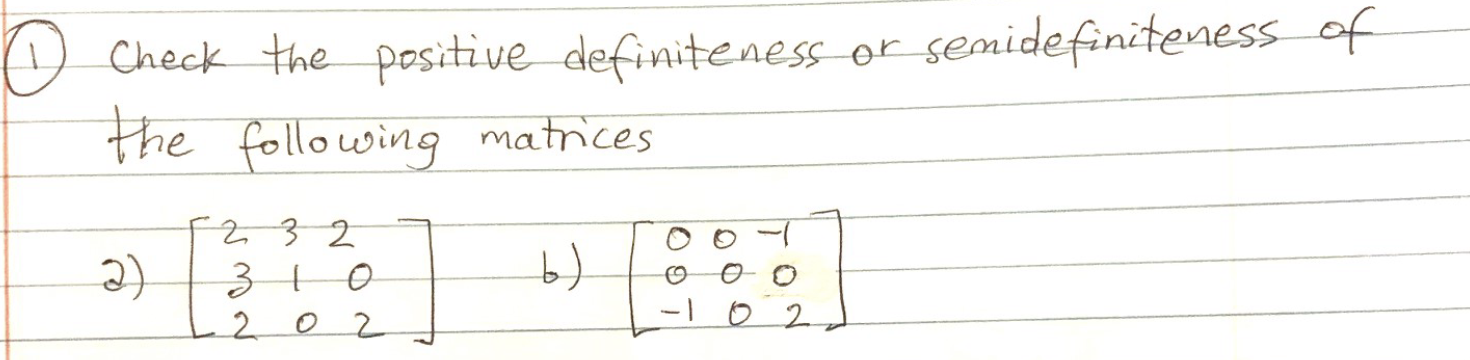 ① Check the positive definiteness or semidefiniteness of
the following matrices
a) [2 3 2 b) [0 0 -1
3 1 0 0 0 0
2 0 2] -1 0 2]